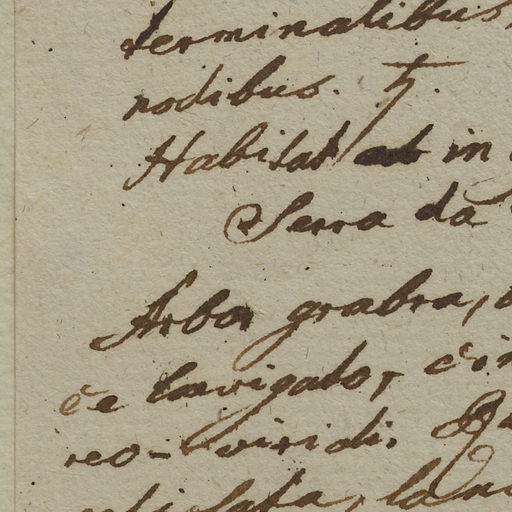 terminalibus,
nodibus. ♄.
Habitat in
Serra da
Arbor grabra,
ce laevigato,
reo-viridi.